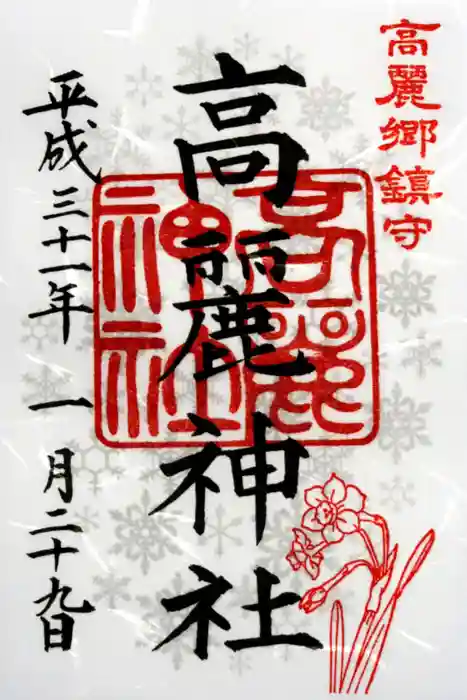 高麗郷鎮守
高麗神社
高麗神社
平成三十一年 一月二十九日